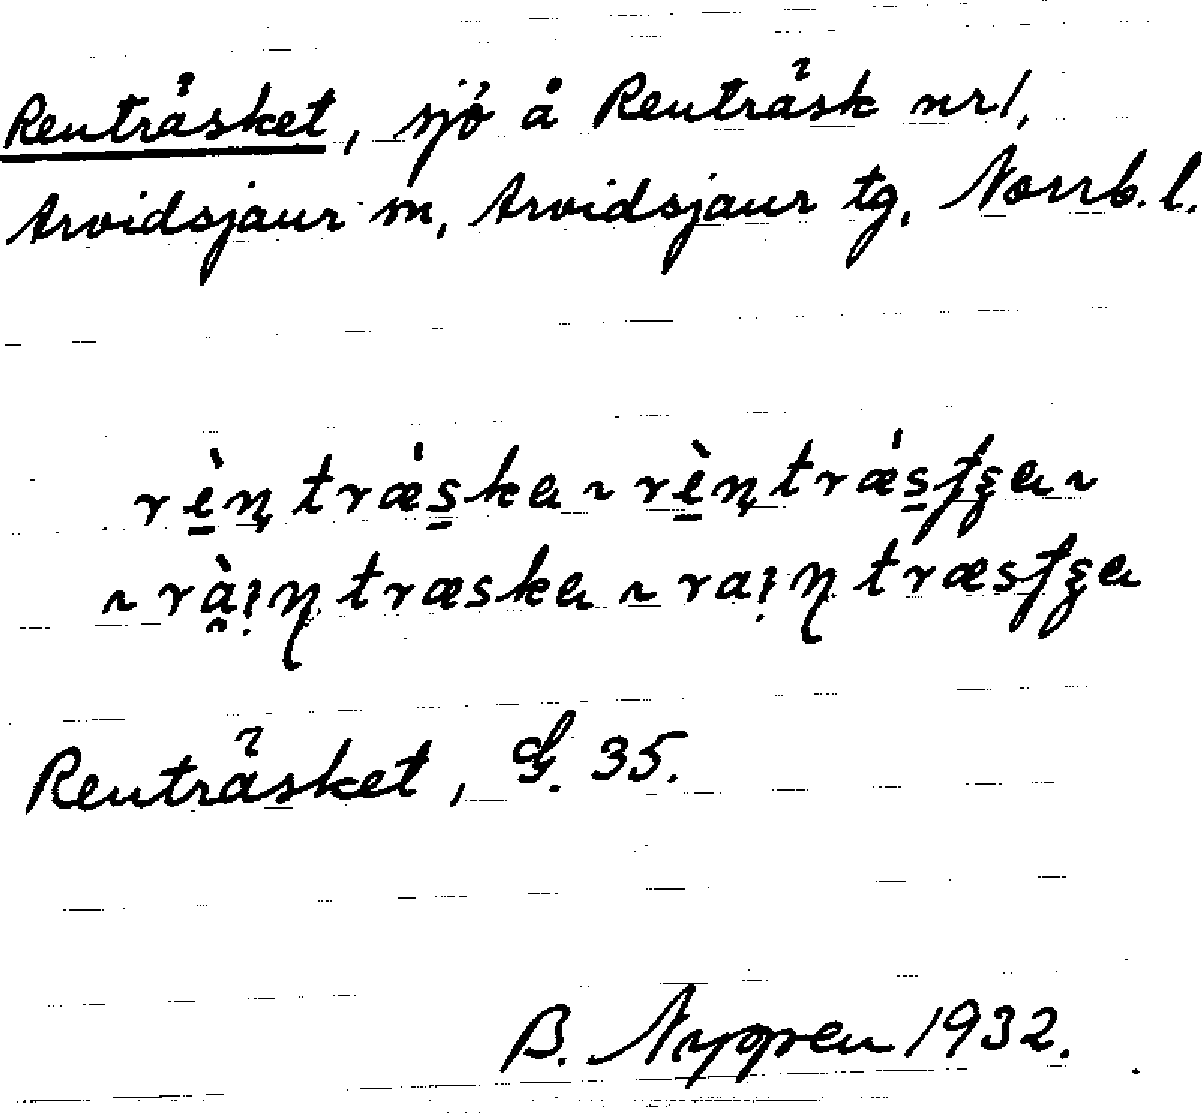 Renträsket, sjö å Renträsk nr 1,
Arvidsjaur sn, Arvidsjaur tg, Norrb. l.
rè̱n̨ træ̍s̱ka ~ rè̱n̨ træ̍s̱ʃʒa ~
~ rà̰ı̣ŋ træska ~ raı̣ŋ træsʃʒa
Renträsket, G. 35.
B. Nygren 1932.